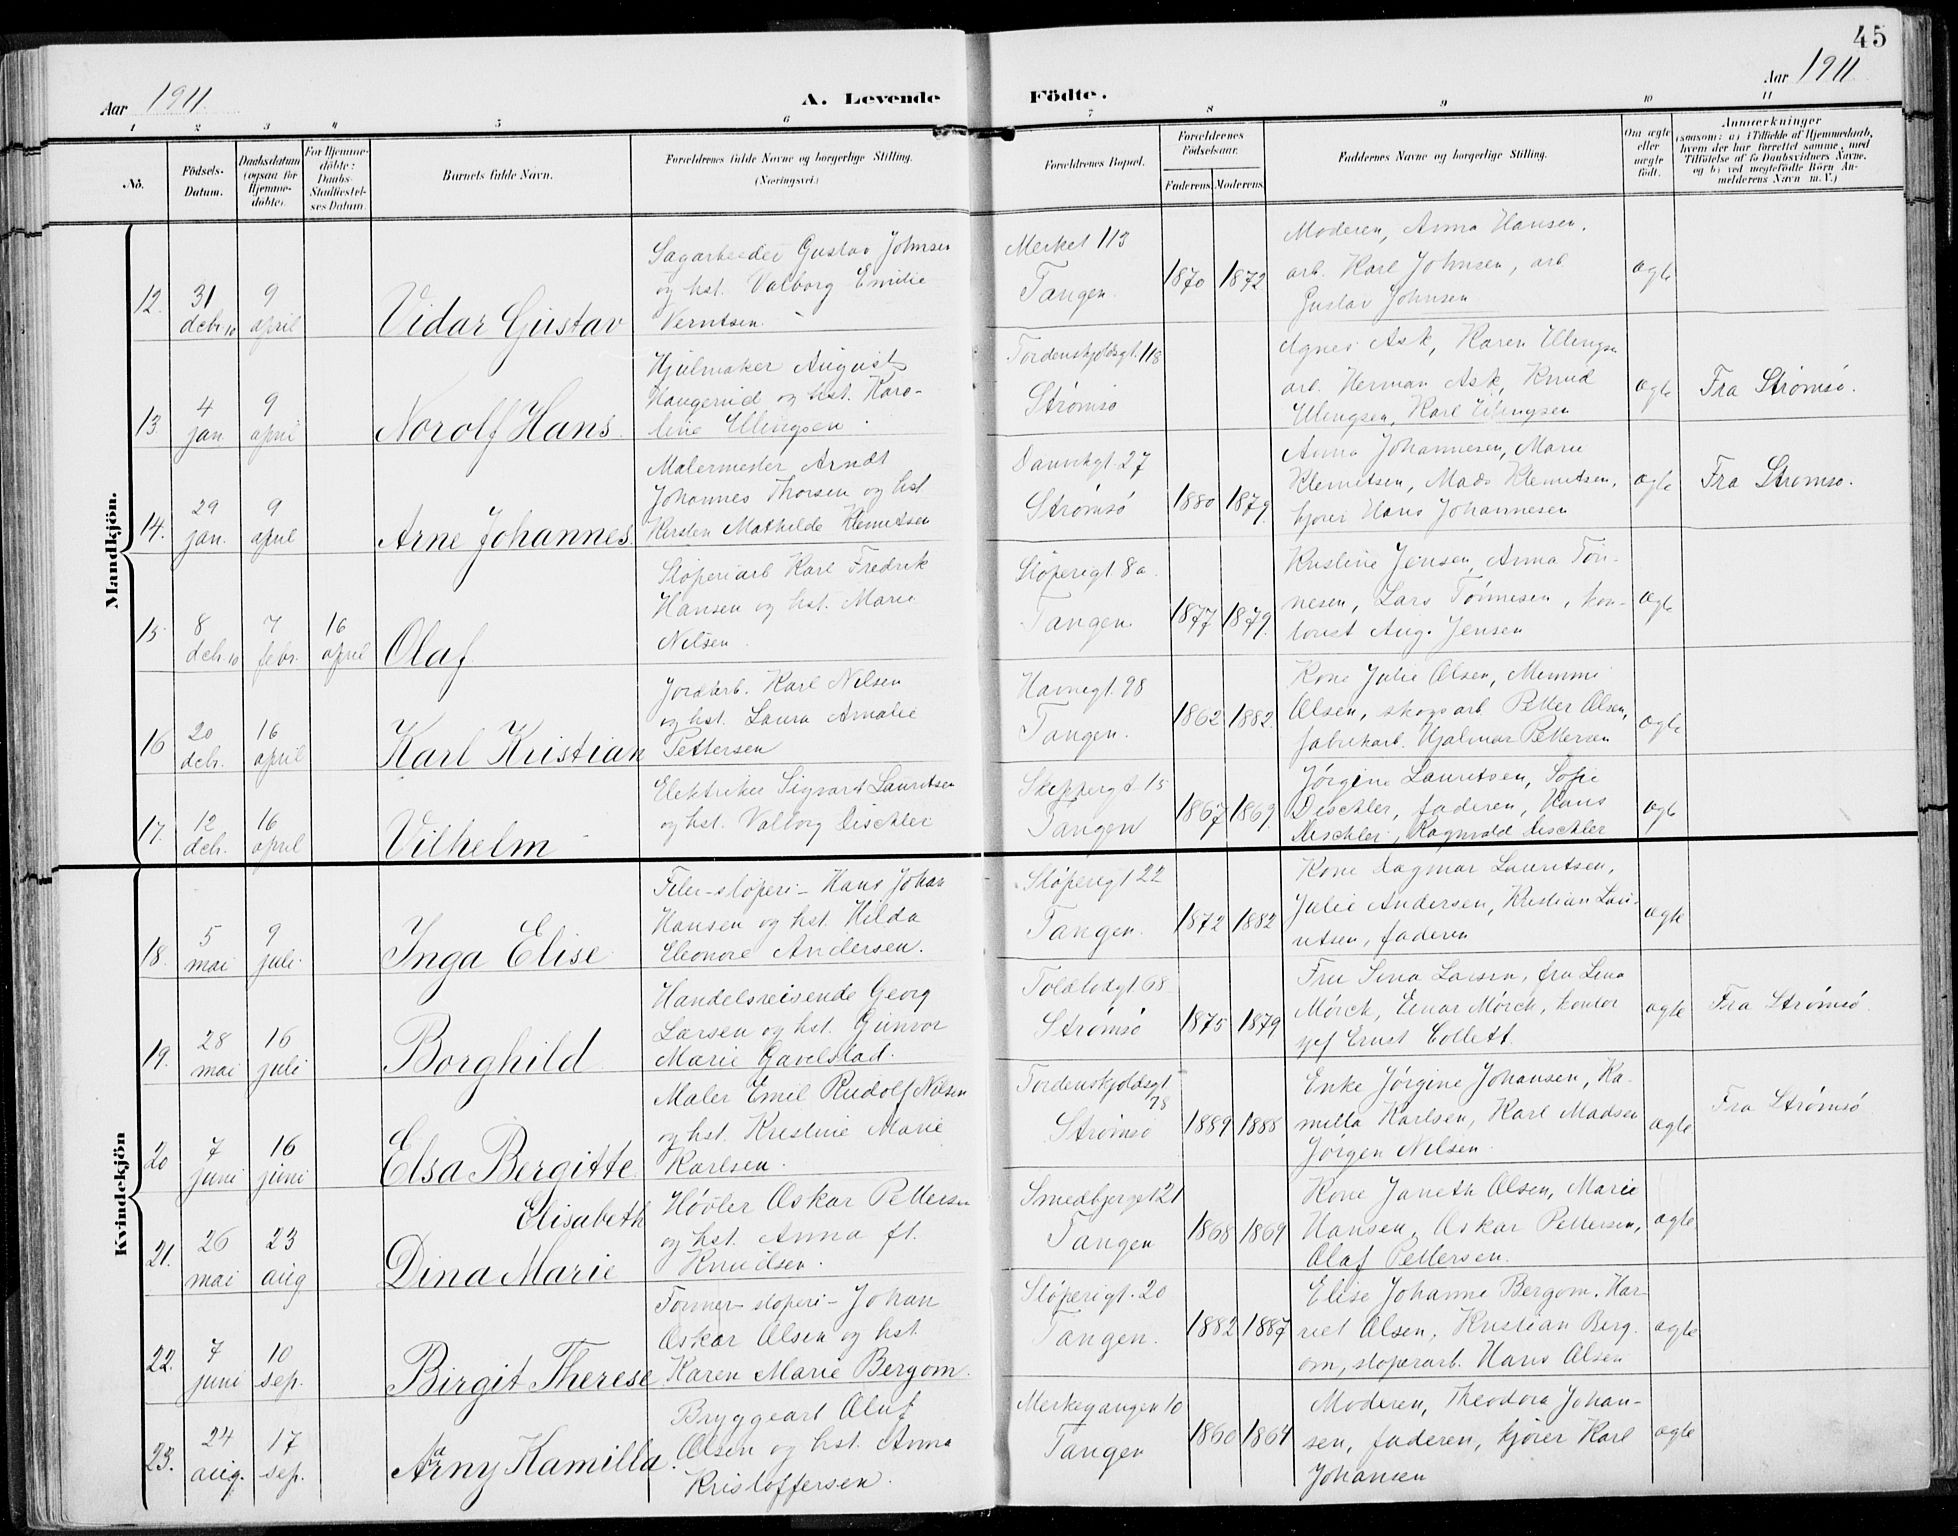 45
Aar 1911
A. Levende
Födte.
Aar 1911
1 2 3 4 5 6 7 8 9 10 11
No.
Födsels-
Datum.
Daabsdatum
(ogsaa for
Hjemme-
döbte).
For Hjemme-
döbte:
Daabs-
Stadfæstel-
ses Datum.
Barnets fulde Navn.
Forældrenes fulde Navne og borgerlige Stilling.
(Næringsvei.)
Forældrenes Bopæl.
Forældrenes
Födselsaar.
Faderens. Moderens.
Faddernes Navne og borgerlige Stilling.
Om ægte
eller
uægte
födt.
Anmærkninger
(saasom: a) i Tilfælde af Hjemmedaab,
hvem der har forrettet samme, med
Tilföielse af to Daabsvidners Navne,
og b) ved uægtefödte Börn An-
melderens Navn m. V.)
Mandkjön.
12. 31 debr. 10 9 april
Vidar Gustav
Sagarbeider Gustav Johnsen
og hst. Valborg Emilie
Berntsen.
Merket 113
Tangen.
1870 1872
Moderen, Anna Hansen,
arb. Karl Johnsen, arb.
Gustav Johnsen
ægte
13 4 jan 9 april
Norolf Hans.
Hjulmaker August
Haugerud og hst. Karo-
line Ellingsen.
Tordenskjoldsgt. 118
Strömsö
Agnes Ask, Karen Ellingsen
arb. Herman Ask, Knud
Ellingsen, Karl Ellingsen
ægte
Fra Strömsö.
14. 29 jan. 9 april
Arne Johannes.
Malermester Arndt
Johannes Thorsen og hst
Kirsten Mathilde Klemetsen
Danvikgt. 27
Strömsö
1880 1879.
Anna Johannesen, Marie
Klemetsen, Mads Klemetsen,
kjører Hans Johannesen
ægte
Fra Strömsö.
15 8 deb. 10 7 febr. 16 april
Olaf
Støperiarb Karl Fredrik
Hansen og hst. Marie
Nilsen.
Støperigt. 8a.
Tangen
1877 1879.
Kristine Jensen, Anna Tön-
nesen, Lars Tönnesen, kon-
torist Aug. Jensen
ægte
16 20 debr. 16 april
Karl Kristian
Jordarb. Karl Nilsen
og hst. Laura Amalie
Pettersen
Havnegt. 98
Tangen.
1862 1882.
Kone Julie Olsen, Memmi
Olsen, skogsarb. Petter Olsen,
fabrikarb. Hjalmar Pettersen
ægte
17. 12 deb. 16 april
Vilhelm
Elektriker Sigvart Lauritsen
og hst. Valborg Dischler
Skippergt 15
Tangen
1867 1869.
Jørgine Lauritsen, Sofie
Dischler, faderen, Hans
Dischler, Ragnvald Dischler
ægte
Kvindekjön
18. 5 mai 9 juli.
Inga Elise
Filer-støperi- Hans Johan
Hansen og hst. Hilda
Eleonore Andersen.
Støperigt 22
Tangen.
1872 1882
Kone Dagmar Lauritsen,
Julie Andersen, Kristian Lau-
ritsen, faderen
ægte
19. 28 mai 16 juli
Borghild
Handelsreisende Georg
Larsen og hst. Gunvor
Marie Gavelstad.
Toldbodgt 68
Strömsö
1875 1879
Fru Sina Larsen, fru Lina
Mörch, Einar Mörch, kontor
Ernst Collett.
ægte
Fra Strömsö
20 7 juni 16 juni
Elsa Bergitte
Maler Emil Rudolf Nilsen
og hst. Kristine Marie
Karlsen.
Tordenskjoldsgt
78
Strömsö
1889 1888
Enke Jørgine Johansen, Ka-
milla Karlsen, Karl Madsen
Jørgen Nilsen.
ægte
Fra Strömsö
21. 26 mai 23 aug
Elisabeth
Dina Marie
Høvler Oskar Pettersen
og hst. Anna ft.
Knudsen.
Smedbjerget 21
Tangen
1868 1869
Kone Janeth Olsen, Marie
Hansen, Oskar Pettersen,
Olaf Pettersen.
ægte
22. 7 juni 10 sep.
Birgit Therese
Former- støperi- Johan
Oskar Olsen og hst.
Karen Marie Bergom.
Støperigt. 20
Tangen.
1882 1887
Elise Johanne Bergom, Har-
riet Olsen, Kristian Berg-
om, støperarb. Hans Olsen
ægte
23. 24 aug. 17 sep.
Arny Kamilla.
Bryggearb Oluf
Olsen og hst. Anna
Kristoffersen.
Merkegangen 10
Tangen
1860 1864
Moderen, Theodora Johan-
sen, faderen, kjører Karl
Johansen
ægte